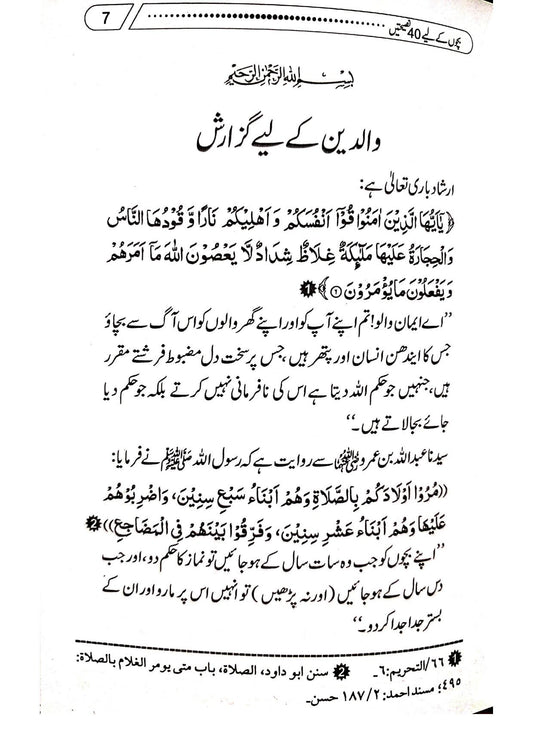 7
بچوں کے لیے 40 نصیحتیں
بِسْمِ اللهِ الرَّحْمٰنِ الرَّحِيْمِ
والدین کے لیے گزارش
ارشاد باری تعالیٰ ہے:
﴿يٰٓاَيُّهَا الَّذِيْنَ اٰمَنُوْا قُوْٓا اَنْفُسَكُمْ وَ اَهْلِيْكُمْ نَارًا وَّ قُوْدُهَا النَّاسُ
وَالْحِجَارَةُ عَلَيْهَا مَلٰٓئِكَةٌ غِلَاظٌ شِدَادٌ لَّا يَعْصُوْنَ اللّٰهَ مَاۤ اَمَرَهُمْ
وَيَفْعَلُوْنَ مَا يُؤْمَرُوْنَ ۝٦﴾ ❶
’’اے ایمان والو! تم اپنے آپ کو اور اپنے گھر والوں کو اس آگ سے بچاؤ
جس کا ایندھن انسان اور پتھر ہیں، جس پر سخت دل مضبوط فرشتے مقرر
ہیں، جنہیں جو حکم اللہ دیتا ہے اس کی نافرمانی نہیں کرتے بلکہ جو حکم دیا
جائے بجا لاتے ہیں۔‘‘
سیدنا عبداللہ بن عمرو رضی اللہ عنہما سے روایت ہے کہ رسول اللہ ﷺ نے فرمایا:
((مُرُوْا أَوْلَادَكُمْ بِالصَّلَاةِ وَهُمْ أَبْنَاءُ سَبْعِ سِنِيْنَ، وَاضْرِبُوْهُمْ
عَلَيْهَا وَهُمْ أَبْنَاءُ عَشْرِ سِنِيْنَ، وَفَرِّقُوْا بَيْنَهُمْ فِي الْمَضَاجِعِ)) ❷
’’اپنے بچوں کو جب وہ سات سال کے ہو جائیں تو نماز کا حکم دو، اور جب
دس سال کے ہو جائیں (اور نہ پڑھیں) تو انہیں اس پر مارو اور ان کے
بستر جدا جدا کر دو۔‘‘
❶ ٦٦/التحریم:٦۔ ❷ سنن ابو داود، الصلاة، باب متى يومر الغلام بالصلاة:
٤٩٥؛ مسند احمد: ١٨٧/٢ حسن۔